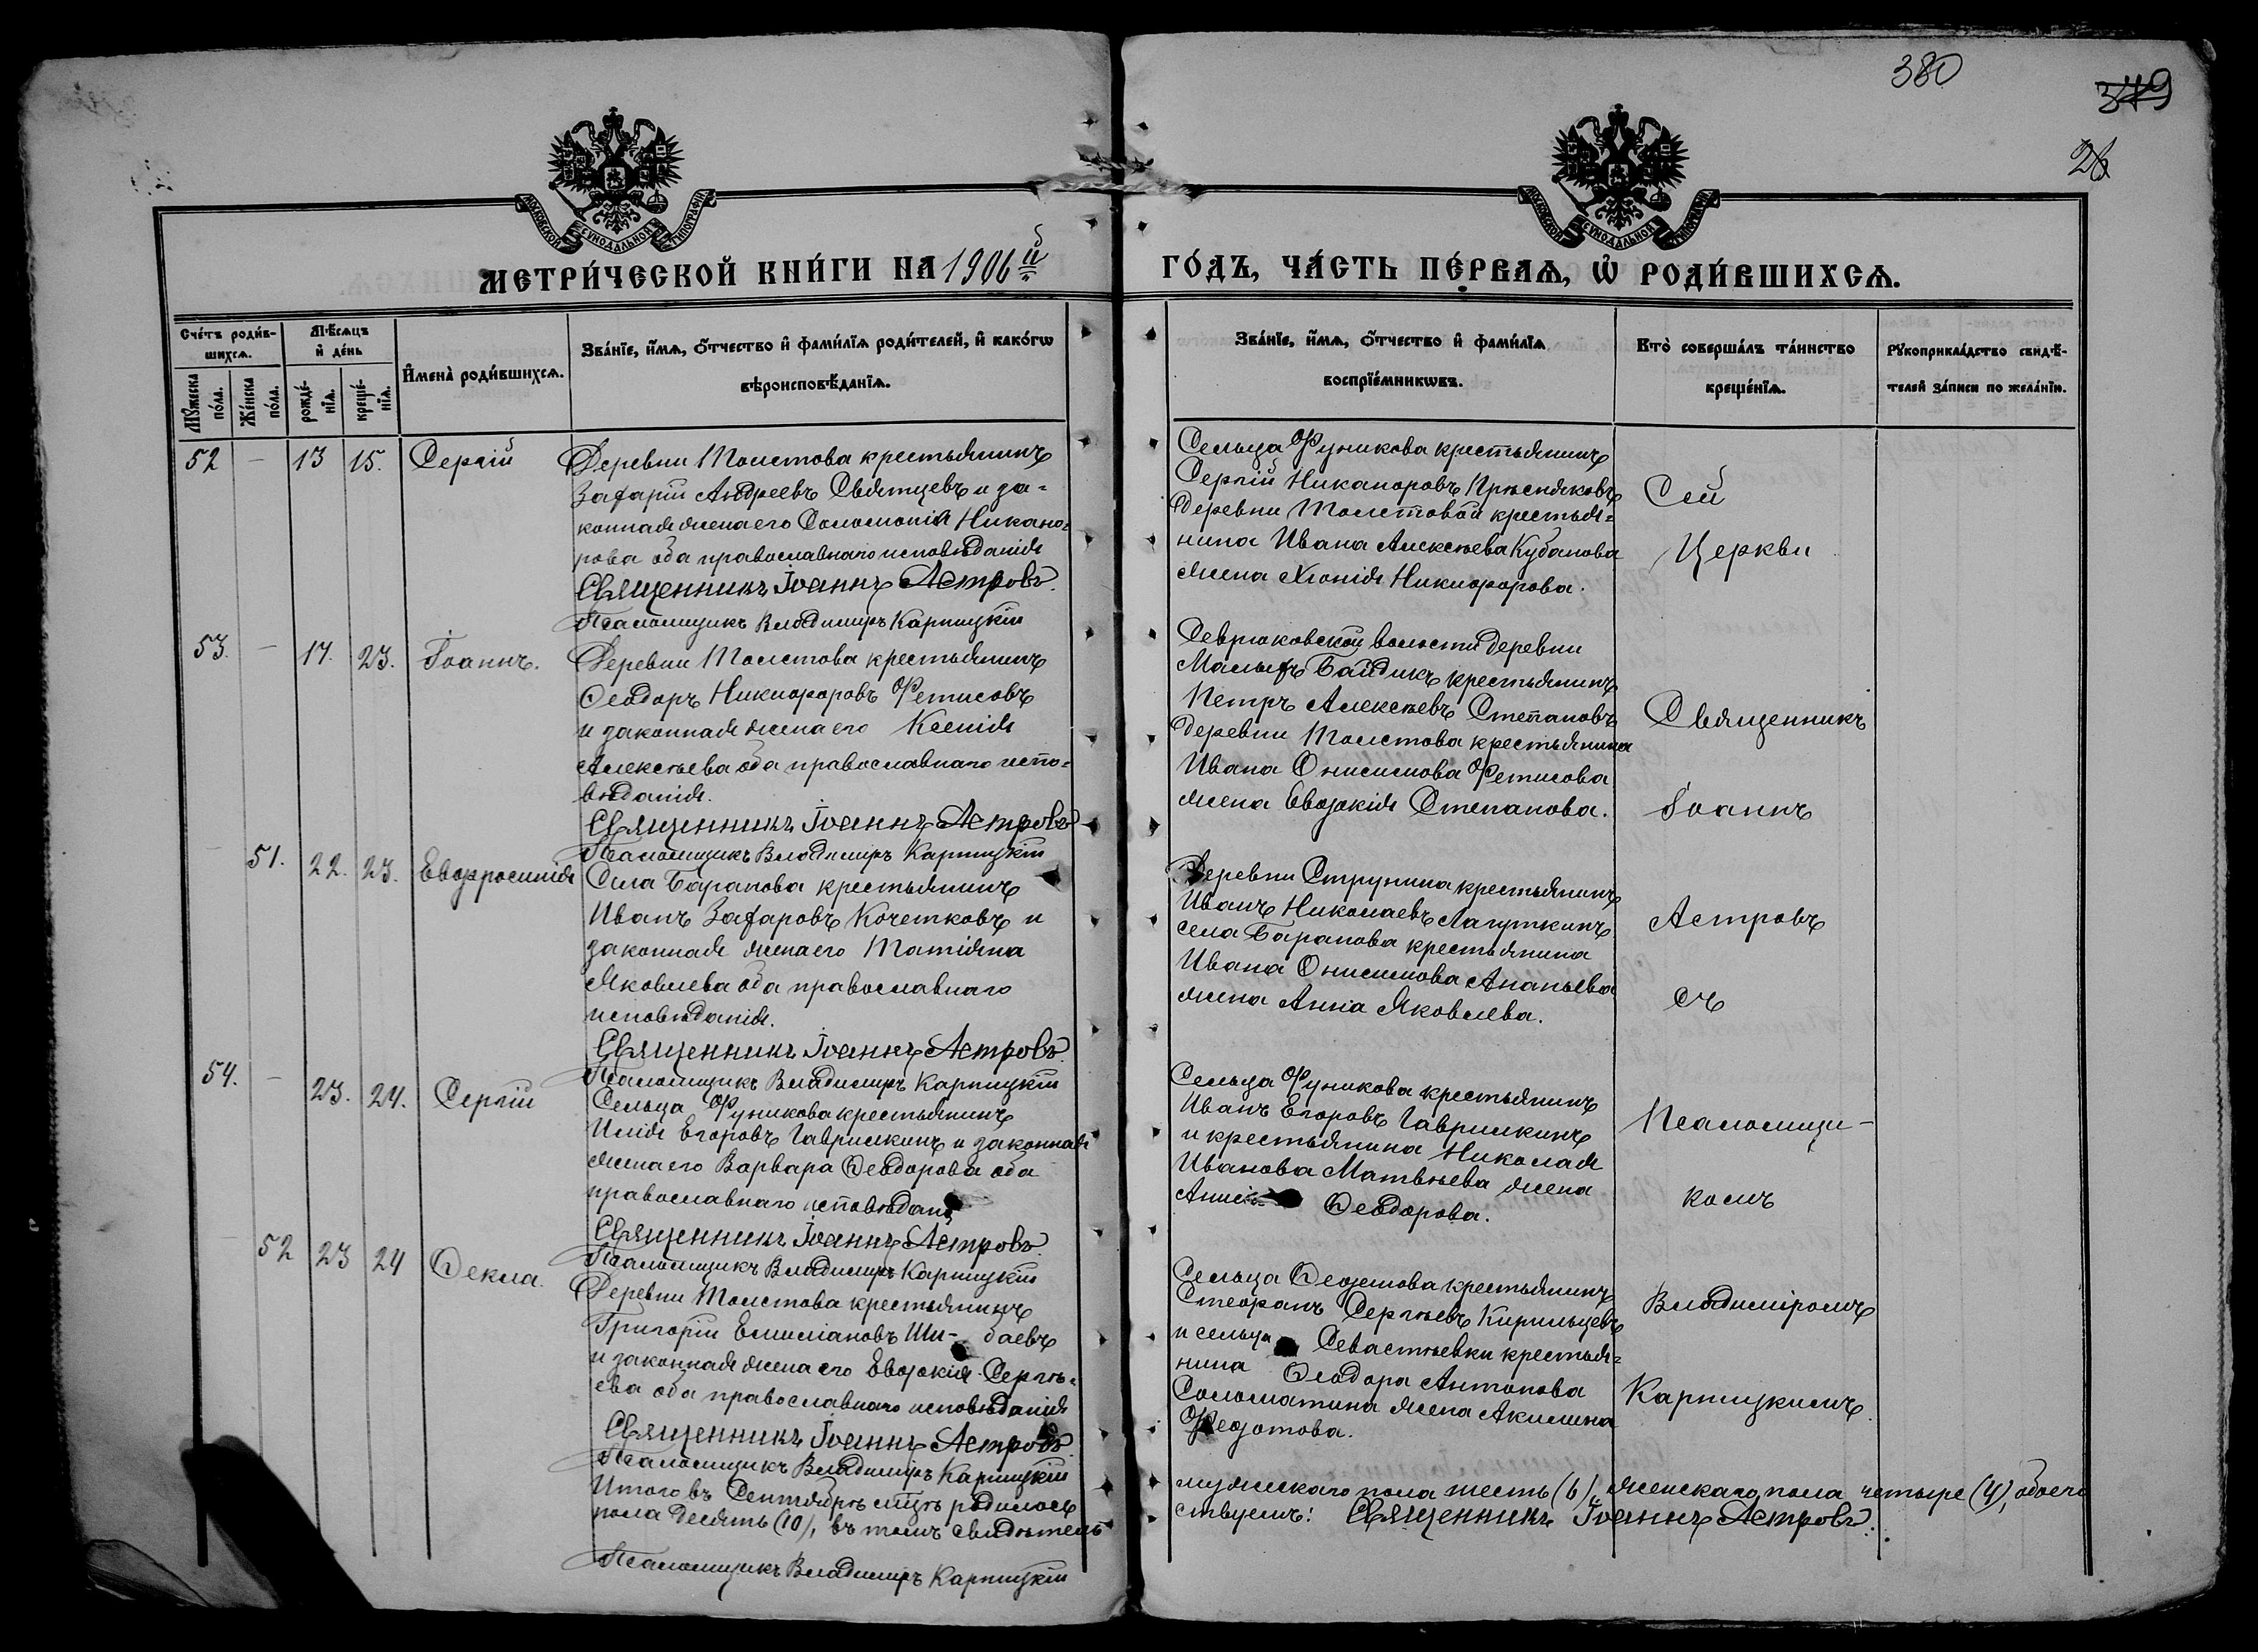 380
349
26
МОСКОВСКОЙ СѴНОДАЛЬНОЙ ТИПОГРАФІИ
МОСКОВСКОЙ СѴНОДАЛЬНОЙ ТИПОГРАФІИ
МЕТРИ́ЧЕСКОЙ КНИ́ГИ НА 1906й
ГО́ДЪ, ЧА́СТЬ ПЕ́РВАѦ, Ѡ҆ РОДИ́ВШИХСѦ.
Сче́тъ роди́в-
шихсѧ.
Мѣ́сѧцъ
и҆ де́нь
Мꙋ́жеска
по́ла.
Же́нска
по́ла.
рожде́-
нїѧ.
креще́-
нїѧ.
И҆мена̀ роди́вшихсѧ.
Зва́нїе, и҆́мѧ, ѻ҆́тчество и҆ фами́лїѧ роди́телей, и҆ како́гѡ
вѣроисповѣ́данїѧ.
Зва́нїе, и҆́мѧ, ѻ҆́тчество и҆ фами́лїѧ
воспрїе́мникѡвъ.
Кто̀ соверша́лъ та́инство
креще́нїѧ.
Рꙋкоприкла́дство свидѣ́-
телей за́писи по жела́нїю.
52 — 13 15. Сергій
Деревни Толстова крестьянинъ
Захарій Андреевъ Святцевъ и за-
конная жена его Соломонія Никано-
рова оба православнаго исповѣданія
Священникъ Іоаннъ Астровъ.
Псаломщикъ Владимиръ Карпицкій
Сельца Фуникова крестьянинъ
Сергій Никаноровъ Прѣсняковъ
деревни Толстовой крестья-
нина Ивана Алексѣева Кубанова
жена Хіонія Никифорова.
53. — 17. 23. Іоаннъ.
Деревни Толстова крестьянинъ
Ѳеодоръ Никифоровъ Фетисовъ
и законная жена его Ксенія
Алексѣева оба православнаго испо-
вѣданія.
Священникъ Іоаннъ Астровъ
Псаломщикъ Владимиръ Карпицкій
Севрюковской волости деревни
Малыхъ Байдикъ крестьянинъ
Петръ Алексѣевъ Степановъ
деревни Толстова крестьянина
Ивана Онисимова Фетисова
жена Евдокія Степанова.
51. 22. 23. Евфросинія
Села Баранова крестьянинъ
Иванъ Захаровъ Кочетковъ и
законная жена его Татіяна
Яковлева оба православнаго
исповѣданія.
Священникъ Іоаннъ Астровъ.
Псаломщикъ Владимиръ Карпицкій
Деревни Струнина крестьянинъ
Иванъ Николаевъ Лагуткинъ
села Баранова крестьянина
Ивана Онисимова Ананьева
жена Анна Яковлева.
54. — 23. 24. Сергій
Сельца Фуникова крестьянинъ
Илія Егоровъ Гаврилкинъ и законная
жена его Варвара Ѳеодорова оба
православнаго исповѣдан
Священникъ Іоаннъ Астровъ.
Псаломщикъ Владимиръ Карпицкій
Сельца Фуникова крестьянинъ
Иванъ Егоровъ Гаврилкинъ
и крестьянина Николая
Иванова Матвѣева жена
Ѳеодорова.
52 23 24 Ѳекла.
Деревни Толстова крестьянинъ
Григорій Емиліановъ Ши- баевъ
и законная жена его Евдокія Сергѣ-
ева оба православнаго исповѣданія
Священникъ Іоаннъ Астровъ.
Псаломщикъ Владимиръ Карпицкій
Сельца крестьянинъ
Стефанъ Сергѣевъ Кирильцевъ
и сельца Севастѣевки крестья-
нина Ѳеодора Антонова
Соломатина жена Акилина
Федотова.
Сей
Церкви
Священникъ
Іоаннъ
Астровъ
съ
Псаломщи-
комъ
Владиміромъ
Карпицкимъ.
Итого въ Сентябрѣ мцѣ родилось
мужскаго пола шесть (6), женскаго пола четыре (4), обоего
пола десять (10), въ томъ свидѣтель-
ствуемъ: Священникъ Іоаннъ Астровъ.
Псаломщикъ Владимиръ Карпицкій